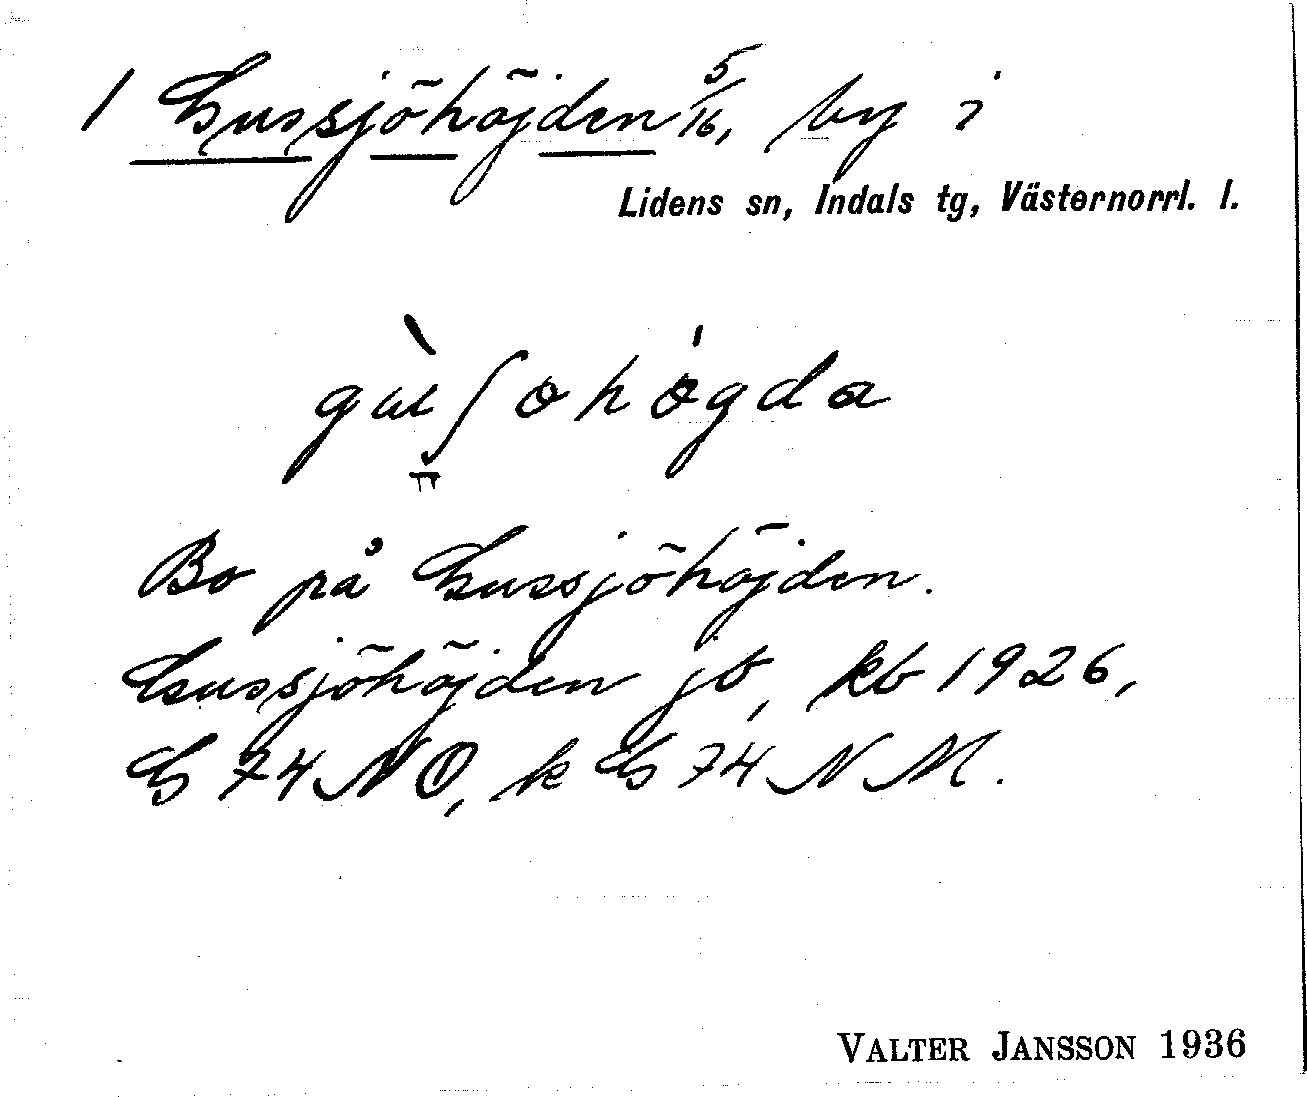 1 Gussjöhöjden 5/16, by i
Lidens sn, Indals tg, Västernorrl. l.
gùʃohógda
Bo på Gussjöhöjden.
Gussjöhöjden jb, kb 1926,
G 74 NO, k G 74 NM.
VALTER JANSSON 1936